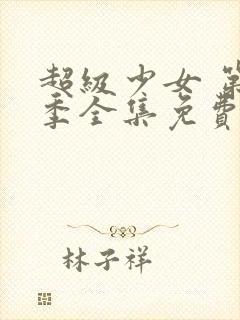 超級少女 第
季全集免費
林子祥